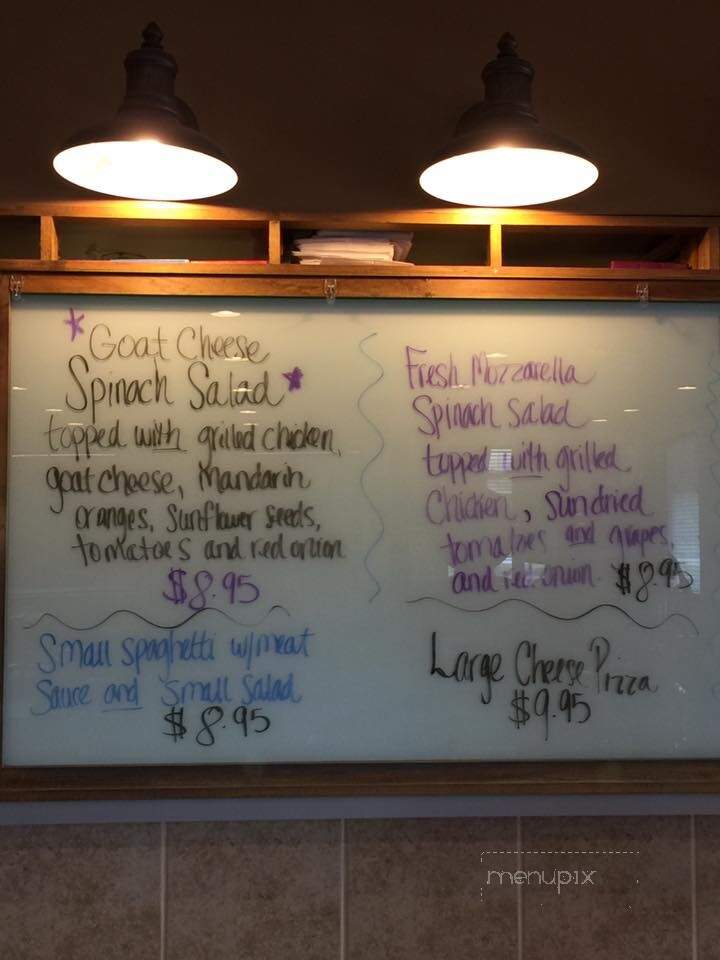 Goat Cheese
Spinach Salad
topped with grilled chicken,
goat cheese, Mandarin
oranges, Sunflower seeds,
tomatoes and red onion
$8.95
Fresh Mozzarella
Spinach Salad
topped with grilled
Chicken, Sundried
tomatoes and grapes,
and red onion. $8.95
Small spaghetti w/meat
Sauce and Small Salad
$8.95
Large Cheese Pizza
$9.95
menupix